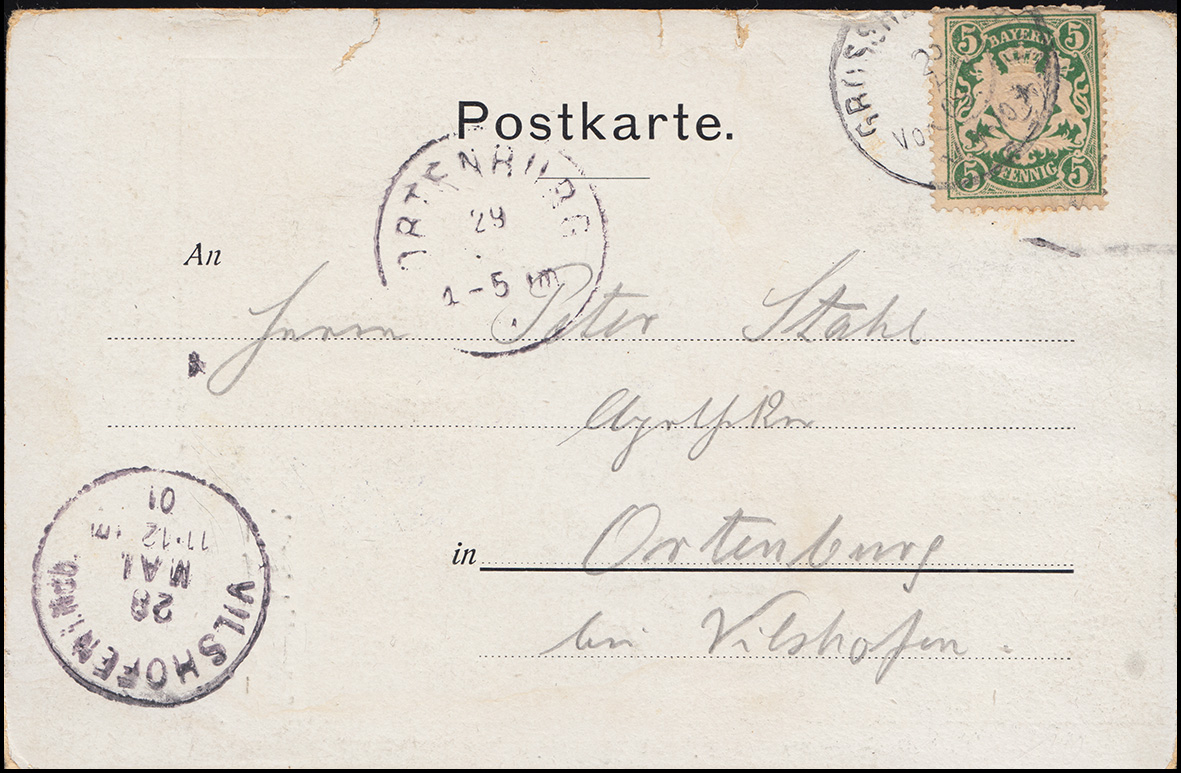 Postkarte.
5 BAYERN 5
5 PFENNIG 5
ORTENBURG
29
1-5
An
Herrn Peter Stahl
Apotheker
in Ortenburg
bei Vilshofen.
VILSHOFEN i. Ndb.
28
MAI
11-12
01